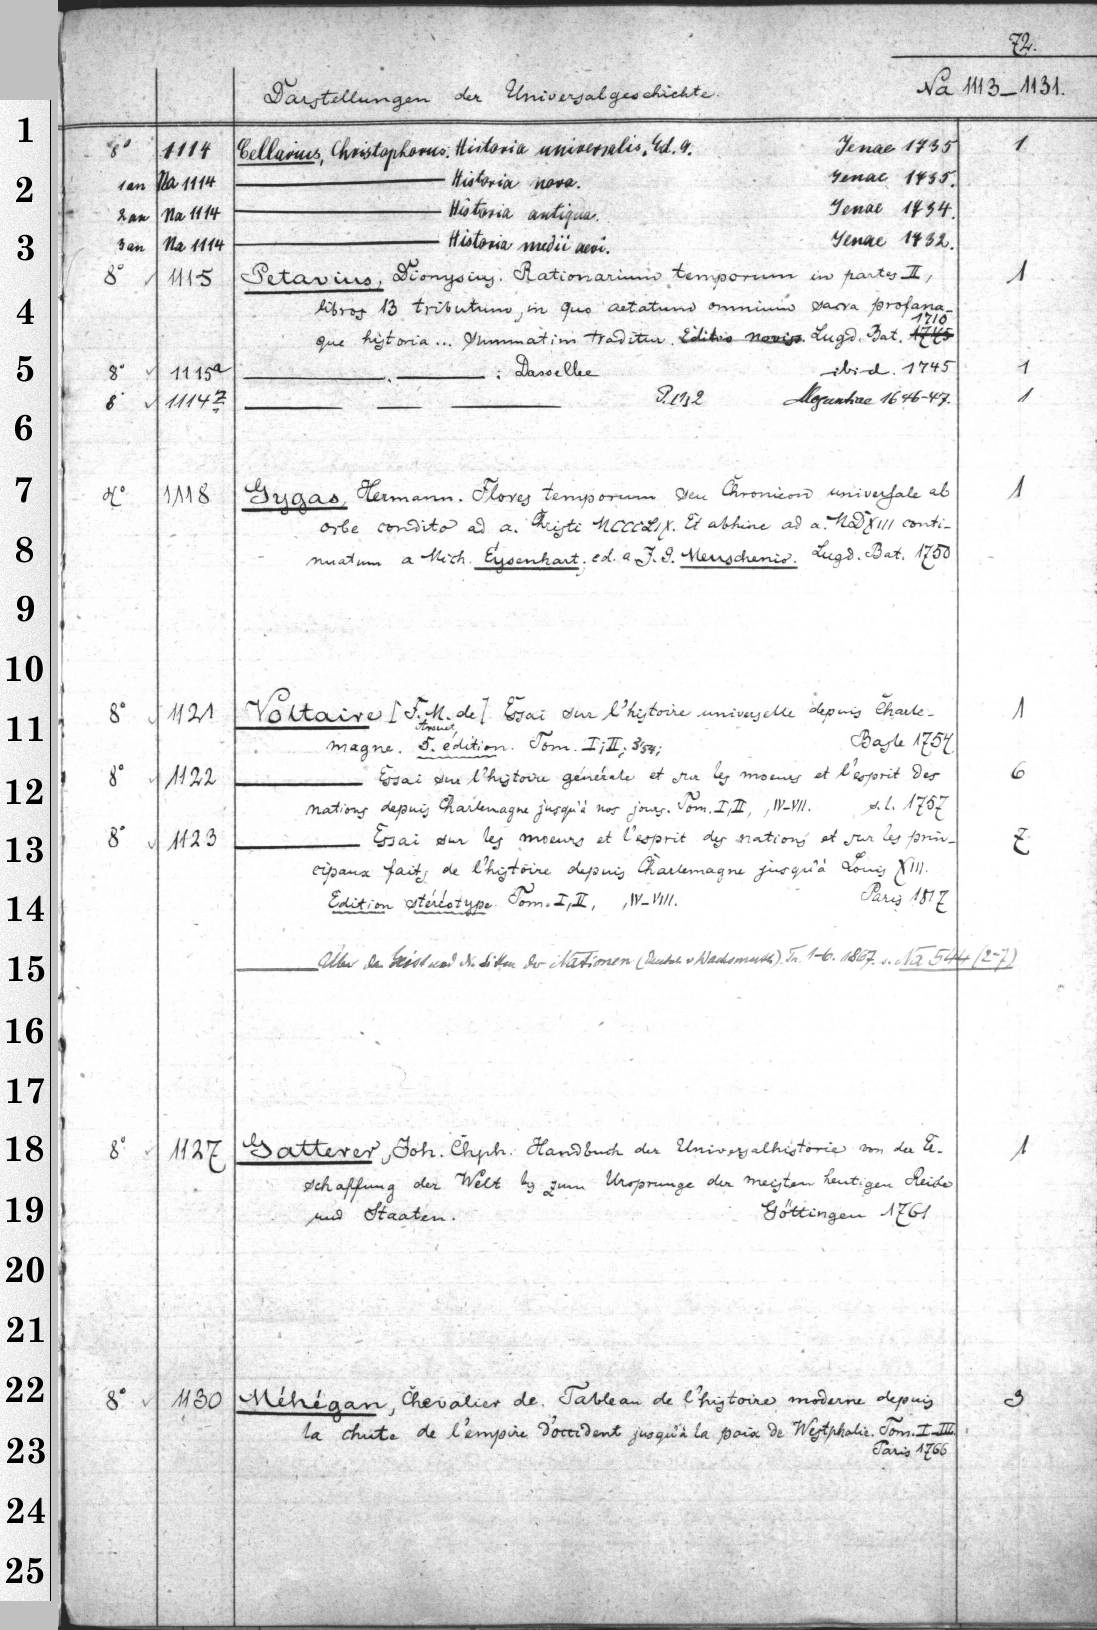 72.
Darstellungen der Universalgeschichte. Na 1113-1131.
1
8° 1114 Cellarius, Christophorus. Historia universalis. Ed. 9. Jenae 1735 1
2
1 an Na 1114 ——— Historia nova. Jenae 1735.
2 an Na 1114 ——— Historia antiqua. Jenae 1734.
3
3 an Na 1114 ——— Historia medii aevi. Jenae 1732.
8° 1115 Petavius, Dionysius. Rationarium temporum in partes II, 1
4
libros 13 tributum, in quo aetatum omnium sacra profana-
1710
que historia... summatim traditur. Editio noviss. Lugd. Bat. 1745
5
8° 1115a ———. ——— : Dasselbe ibid. 1745 1
8° 1114z ——— — ——— P. 1,2 Moguntiae 1646-47. 1
6
7
4° 1118 Gygas, Hermann. Flores temporum seu Chronicon universale ab 1
orbe condito ad a. Christi MCCCLIX. Et abhinc ad a. MDXIII conti-
8
nuatum a Mich. Eysenhart, ed. a J. G. Meuschenio. Lugd. Bat. 1750
9
10
11
8° 1121 Voltaire [F. M. de] Essai sur l'histoire universelle depuis Charle- 1
Arouet
magne. 5. édition. Tom. I, II; 3/54; Basle 1754
12
8° 1122 ——— Essai sur l'histoire générale et sur les moeurs et l'esprit des 6
nations depuis Charlemagne jusqu'à nos jours. Tom. I, II, , IV-VII. s. l. 1757
13
8° 1123 ——— Essai sur les moeurs et l'esprit des nations et sur les prin- 7
cipaux faits de l'histoire depuis Charlemagne jusqu'à Louis XIII.
14
Edition stéréotype. Tom. I, II, , IV-VIII. Paris 1817
15
——— Über den Geist und die Sitten der Nationen (Deutsch v Wachsmuth). Tn. 1-6. 1867. s. Na 544 (2-7)
16
17
18
8° 1127 Gatterer, Joh. Chph. Handbuch der Universalhistorie von der Er- 1
schaffung der Welt bis zum Ursprunge der meisten heutigen Reiche
19
und Staaten. Göttingen 1761
20
21
22
8° 1130 Méhégan, Chevalier de. Tableau de l'histoire moderne depuis 3
la chute de l'empire d'occident jusqu'à la paix de Westphalie. Tom. I-III.
23
Paris 1766
24
25